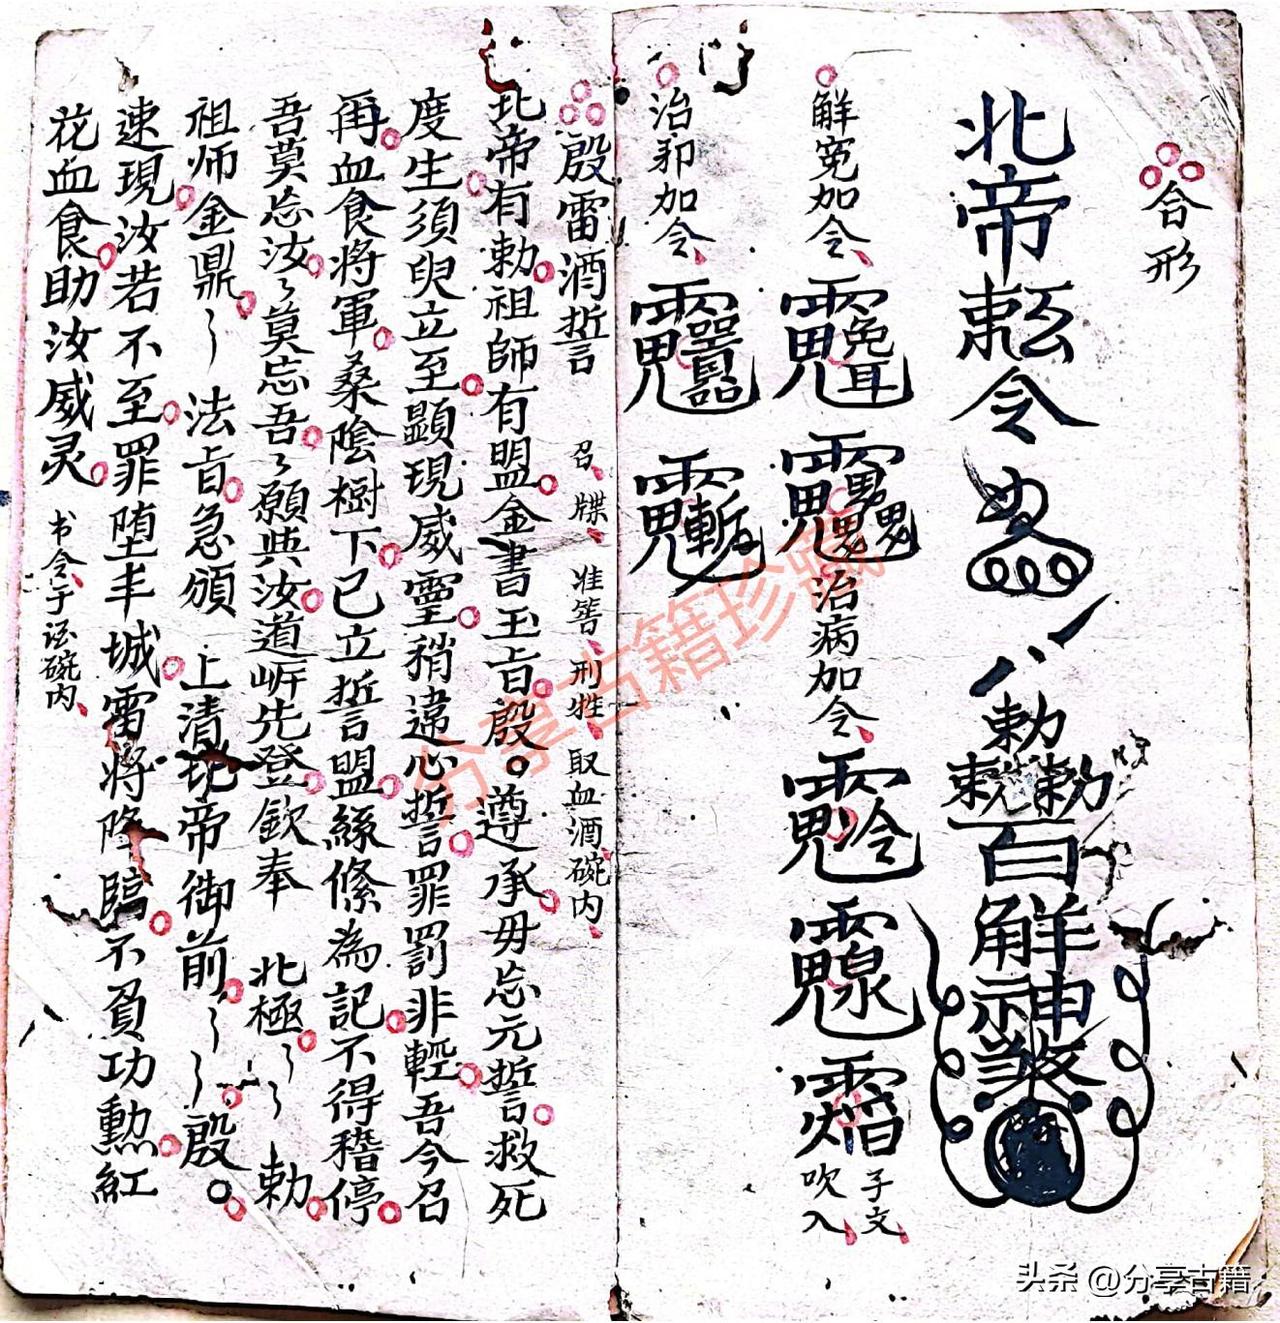 合形
北帝勅令
勅
勅勅
百解神
解冤加令
治病加令
子文
吹入
治邪加令
殷雷酒誓 召牒 准誓 刑牲 取血酒碗内
北帝有勅祖師有盟金書玉旨殷〇遵承毋忘元誓救死
度生須臾立至顯現威靈稍違心誓罪罰非輕吾今召
再血食将軍桑陰樹下已立誓盟絲絛為記不得稽停
吾莫忘汝々莫忘吾々願與汝道岍先登欽奉 北極〻〻勅
祖师金鼎〻法旨急頒 上清北帝御前〻〻殷〇
速現汝若不至罪堕丰城雷将降臨不負功勲紅
花血食助汝威灵 书令于酒碗内
分享古籍珍藏
头条 @分享古籍